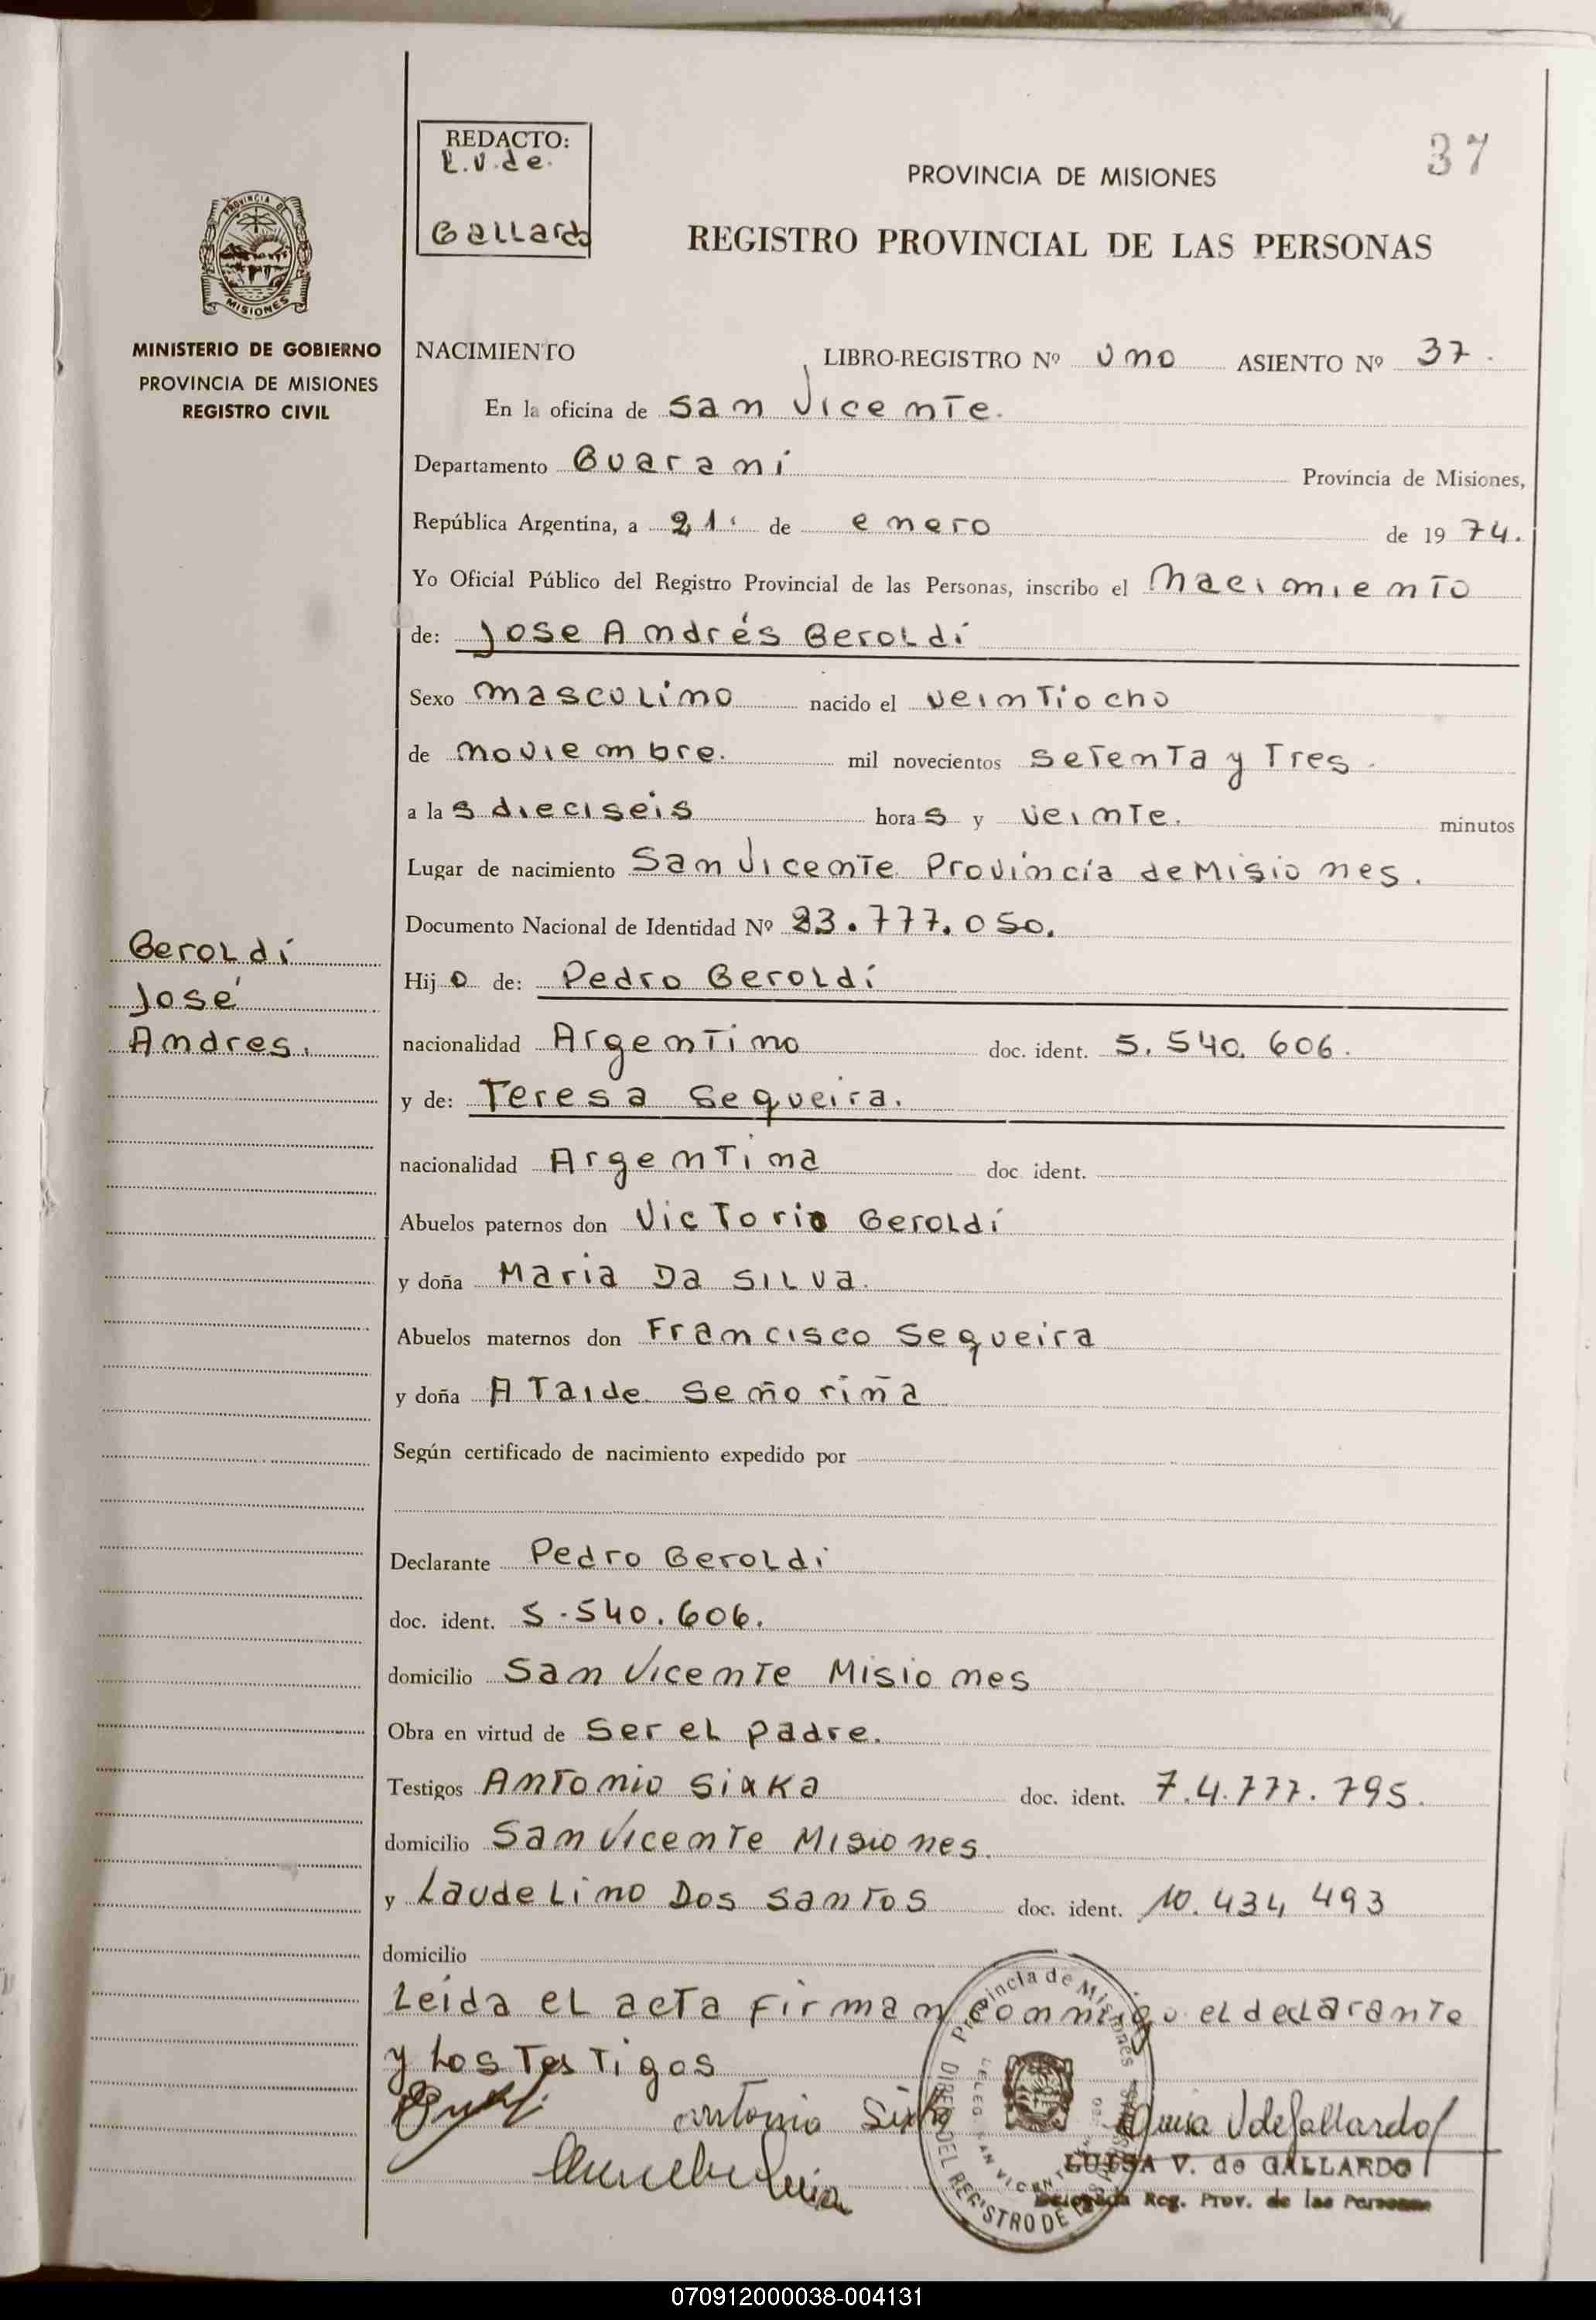 REDACTO:
L.V.de.
Gallardo
37
PROVINCIA DE MISIONES
REGISTRO PROVINCIAL DE LAS PERSONAS
PROVINCIA DE
MISIONES
MINISTERIO DE GOBIERNO
PROVINCIA DE MISIONES
REGISTRO CIVIL
NACIMIENTO LIBRO-REGISTRO Nº uno ASIENTO Nº 37.
En la oficina de San Vicente.
Departamento Guaraní Provincia de Misiones,
República Argentina, a 21 de enero de 19 74.
Yo Oficial Público del Registro Provincial de las Personas, inscribo el Nacimiento
de: Jose Andrés Beroldi
Sexo masculino nacido el veintiocho
de noviembre. mil novecientos setenta y Tres.
a las dieciseis horas y veinte. minutos
Lugar de nacimiento San Vicente Provincia de Misiones.
Documento Nacional de Identidad Nº 23.777.050.
Beroldi
José
Andres.
Hijo de: Pedro Beroldi
nacionalidad Argentino doc. ident. 5.540.606.
y de: Teresa Sequeira.
nacionalidad Argentina doc. ident.
Abuelos paternos don Victorio Beroldi
y doña Maria Da Silva.
Abuelos maternos don Francisco Sequeira
y doña Ataide Señoriña
Según certificado de nacimiento expedido por
Declarante Pedro Beroldi
doc. ident. 5.540.606.
domicilio San Vicente Misiones
Obra en virtud de ser el padre.
Testigos Antonio Sixka doc. ident. 7.4.777.795.
domicilio San Vicente Misiones.
y Laudelino Dos Santos doc. ident. 10.434,493
domicilio
Leida el acta firman conmigo el declarante
y los Testigos
Antonio
Luisa V de Gallardo
LUISA V. de GALLARDO
Delegada Reg. Prov. de las Personas
Provincia de Misiones
DELEG. SAN VICENTE
070912000038-004131